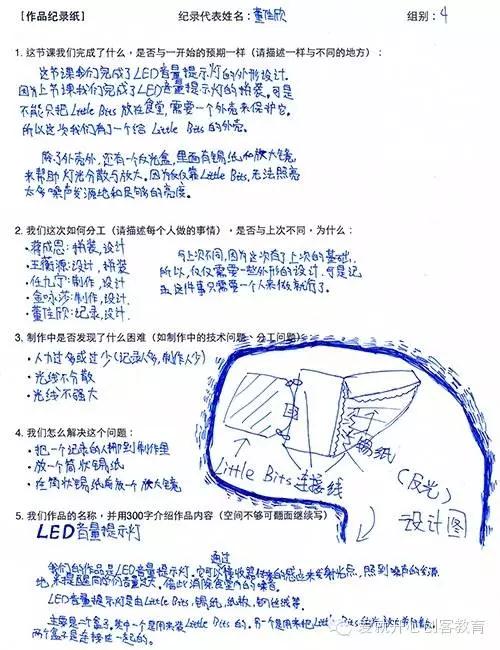 [作品纪录纸] 纪录代表姓名：董佳欣 组别：4
1. 这节课我们完成了什么，是否与一开始的预期一样（请描述一样与不同的地方）：
这节课我们完成了LED音量提示灯的外形设计。
因为上节课我们完成了LED音量提示灯的拼装。可是
不能只把Little Bits放在食堂，需要一个外壳来保护它。
所以这次我们有了一个给Little Bits的外壳。
除了外壳外，还有一个反光盒，里面有锡纸和放大镜，
来帮助灯光分散与放大。因为仅仅靠Little Bits，无法照亮
太多噪声发源地和足够的亮度。
2. 我们这次如何分工（请描述每个人做的事情），是否与上次不同，为什么：
·蒋成恩：拼装，设计
·王蘅源：设计，拼装
·任九宁：制作，设计
·金咏莎：制作，设计
·董佳欣：纪录，设计
与上次不同，因为这次有了上次的基础，
所以，仅仅需要一些外形的设计，可是记
录这件事只需要一个人来做就行了。
3. 制作中是否发现了什么困难（如制作中的技术问题、分工问题）
·人力过多或过少（记录人多，制作人少）
·光线不分散
·光线不够大
4. 我们怎么解决这个问题：
·把一个记录的人挪到制作里
·放一个筒状锡纸
·在筒状锡纸后放一个放大镜
锡纸
Little Bits 连接线
（反光）
设计图
5. 我们作品的名称，并用300字介绍作品内容（空间不够可翻面继续写）
LED音量提示灯
通过
我们的作品是LED音量提示灯。它可以接收器传来的感应来发射光点，照到噪声的发源
地，来提醒同学们音量过大，借此消除食堂内的噪音。
LED音量提示灯是由Little Bits，锡纸，纸板，铜丝线等。
主要是二个盒子。其中一个是用来装Little Bits的。另一个是用来把Little Bits
两个盒子是连接在一起的。
爱就开心创客教育